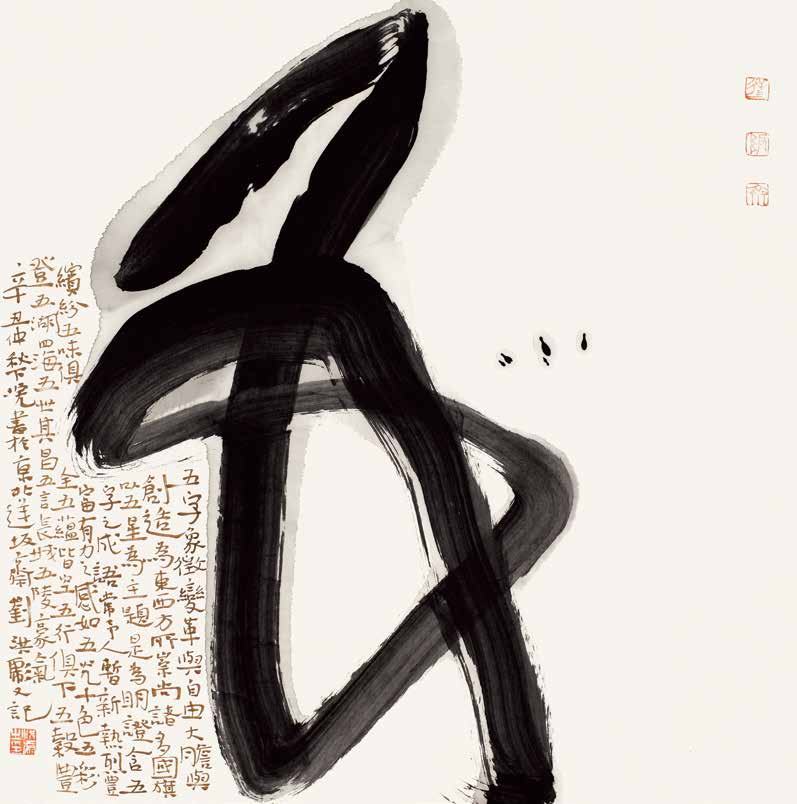 五
五字象徵變革與自由大膽與
創造為東西方所崇尚諸多國旗
以五星為主題是為明證含五
字之成語常予人暫新熱烈豐
富有力之感如五光十色五彩
繽紛五味俱全五蘊皆空五行俱下五穀豐
登五湖四海五世其昌五言長城五陵豪氣
辛丑仲秋下浣書於京北逆坂齋劉洪彪又記